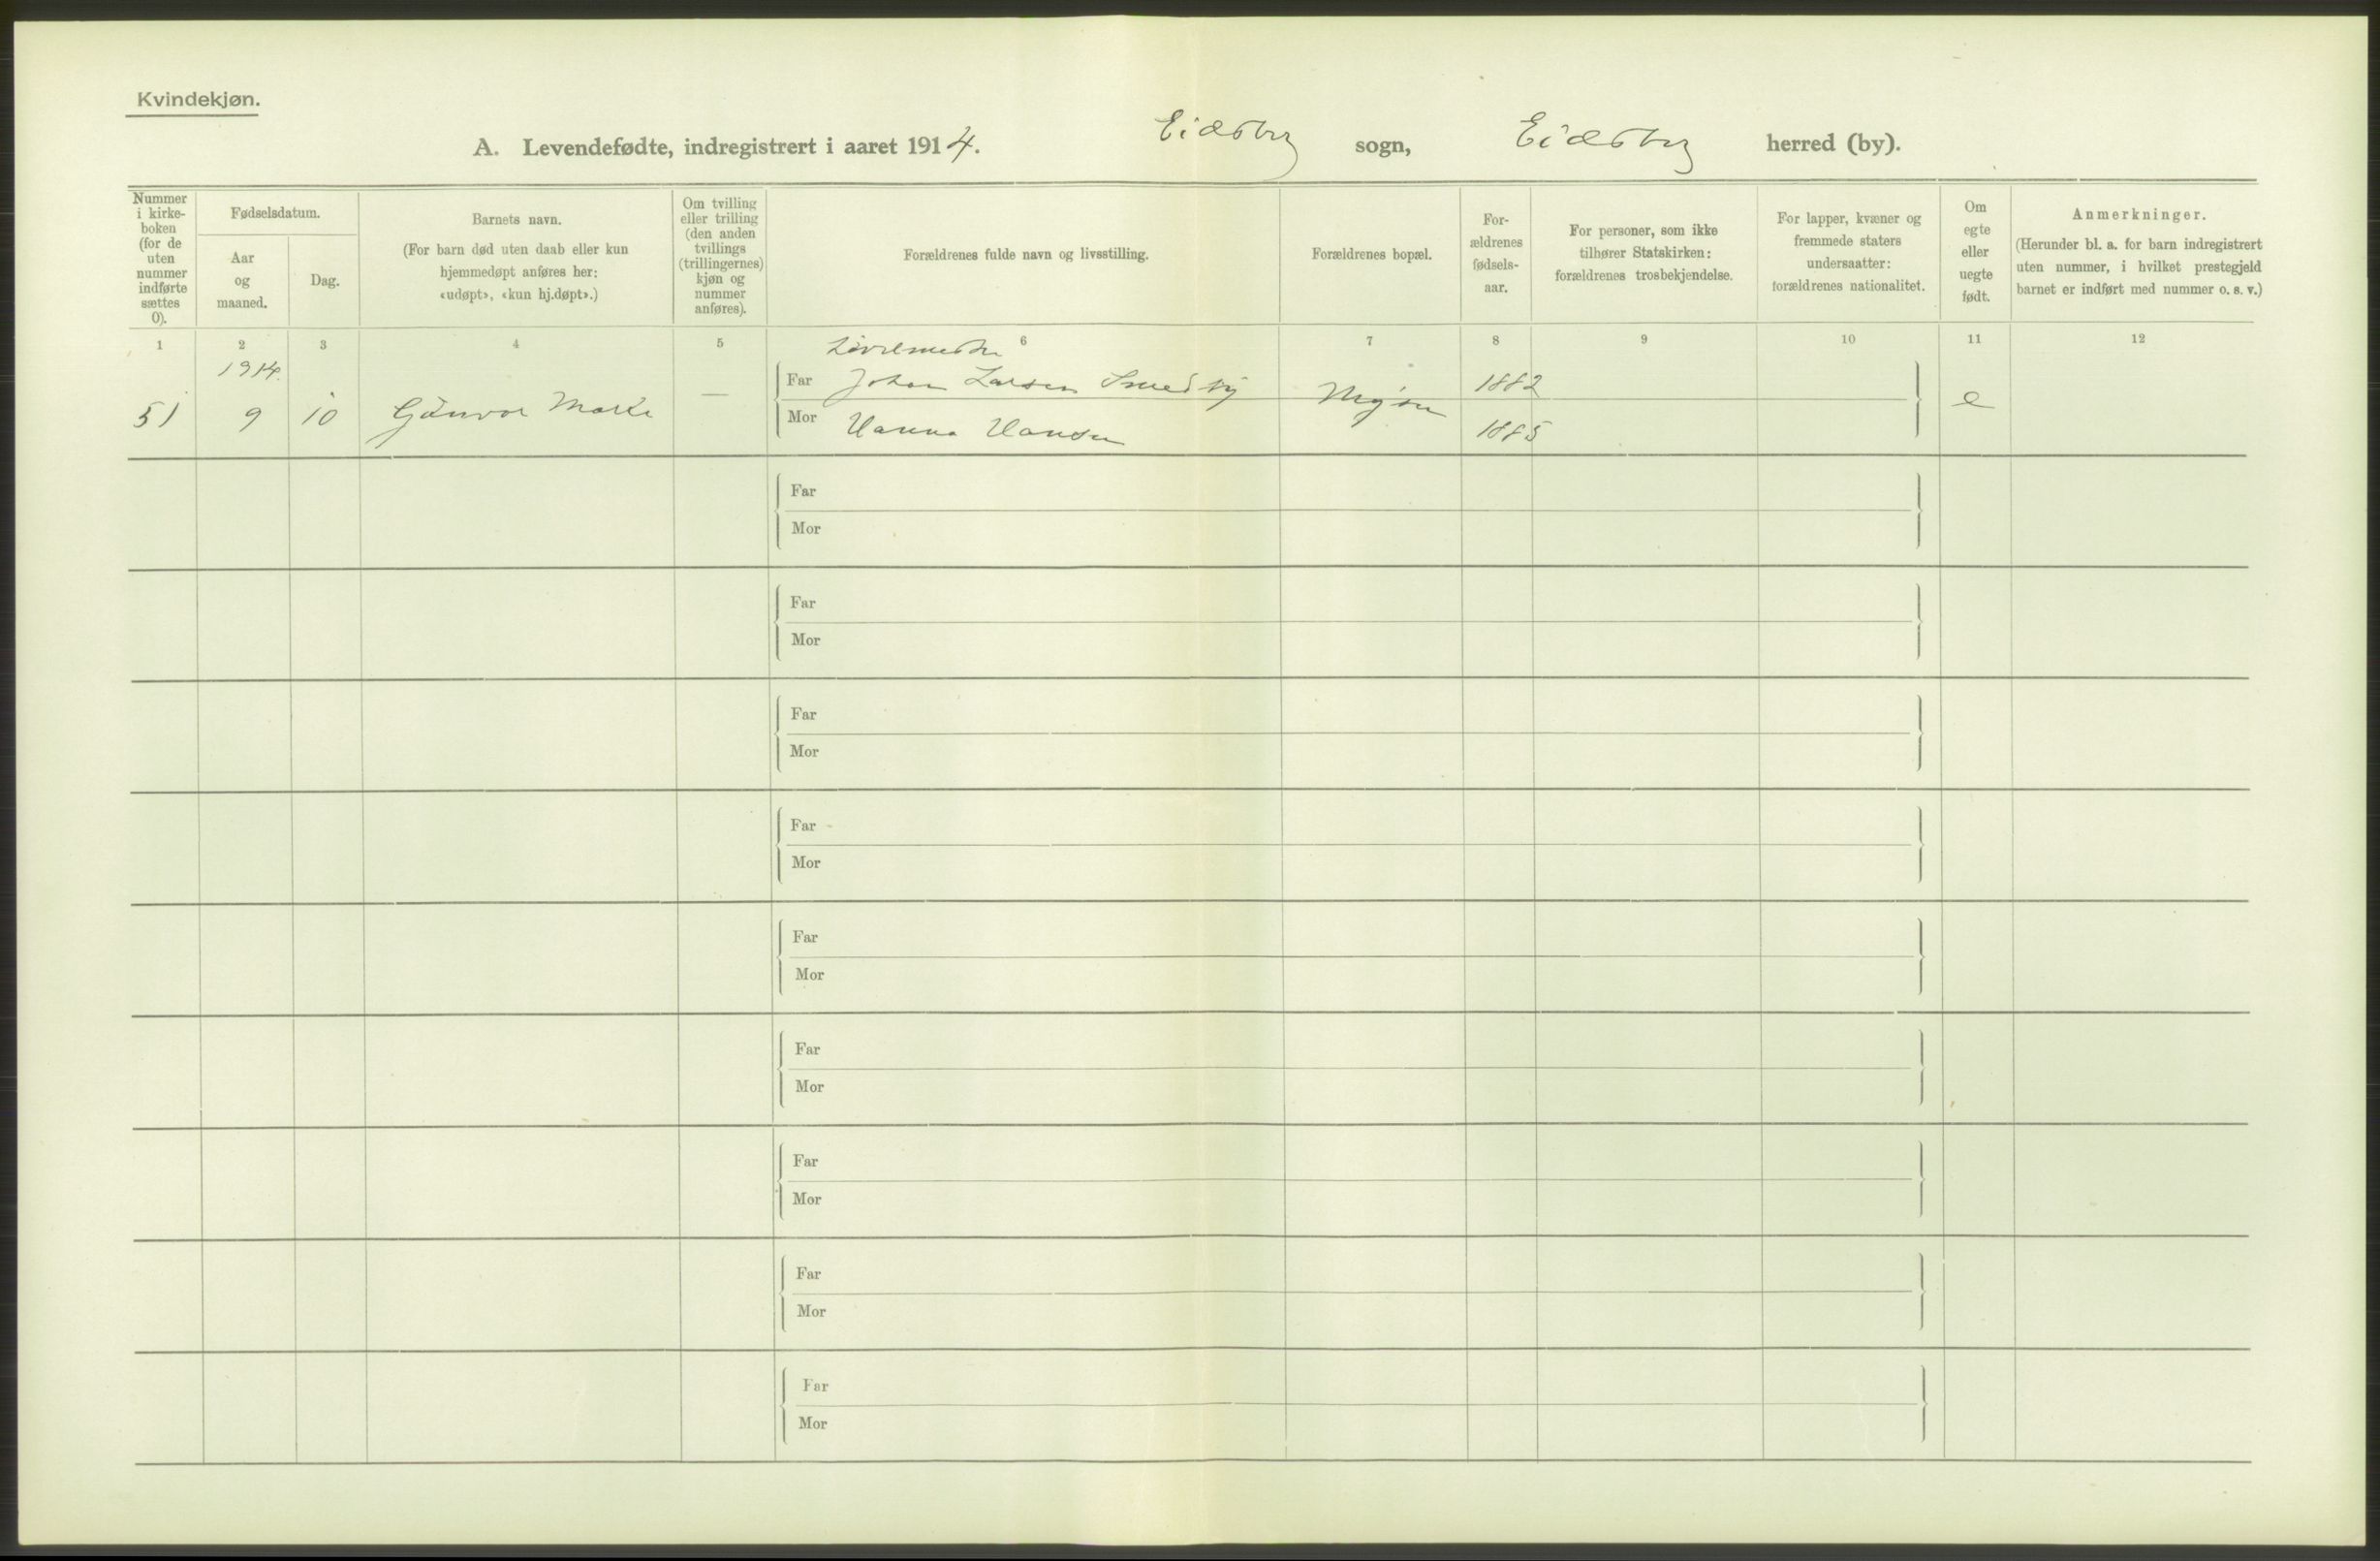 Kvindekjøn.
A. Levendefødte, indregistrert i aaret 1914. Eidsberg sogn, Eidsberg herred (by).
Nummer i kirke-boken (for de uten nummer indførte sættes 0).
Fødselsdatum.
Aar og maaned.
Dag.
Barnets navn.
(For barn død uten daab eller kun hjemmedøpt anføres her: «udøpt», «kun hj.døpt».)
Om tvilling eller trilling (den anden tvillings (trillingernes) kjøn og nummer anføres).
Forældrenes fulde navn og livsstilling.
Forældrenes bopæl.
For-ældrenes fødsels-aar.
For personer, som ikke tilhører Statskirken: forældrenes trosbekjendelse.
For lapper, kvæner og fremmede staters undersaatter: forældrenes nationalitet.
Om egte eller uegte født.
Anmerkninger.
(Herunder bl. a. for barn indregistrert uten nummer, i hvilket prestegjeld barnet er indført med nummer o. s. v.)
1 2 3 4 5 6 7 8 9 10 11 12
1914.
51 9 10 Gunvor Marie —
Far Johan Larsen Smedby 1882
Mor Hanna Hansen 1885
e
Far
Mor
Far
Mor
Far
Mor
Far
Mor
Far
Mor
Far
Mor
Far
Mor
Far
Mor
Far
Mor